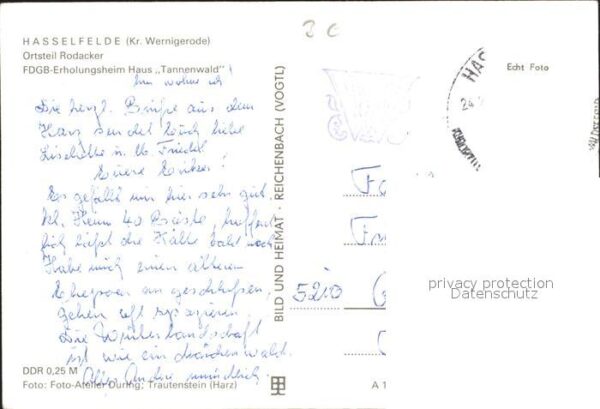 3 C
HASSELFELDE (Kr. Wernigerode)
Ortsteil Rodacker
FDGB-Erholungsheim Haus „Tannenwald"
hier wohne ich
Die herzl. Grüße aus dem
Harz sendet Euch liebe
Liselotte u. lb. Friedel
Eure
Es gefällt mir hier sehr gut.
kl. Heim 40 Gäste, hoffent
lich läßt die Kälte bald nach
Habe mich einem älteren
Ehepaar angeschlossen,
gehen oft spazieren.
Die Winterlandschaft
ist wie ein Märchenwald.
Alles Andre mündlich.
DDR 0,25 M
Foto: Foto-Atelier Düring, Trautenstein (Harz)
BILD UND HEIMAT · REICHENBACH (VOGTL)
Echt Foto
HAS
24
5210
A 1
privacy protection
Datenschutz